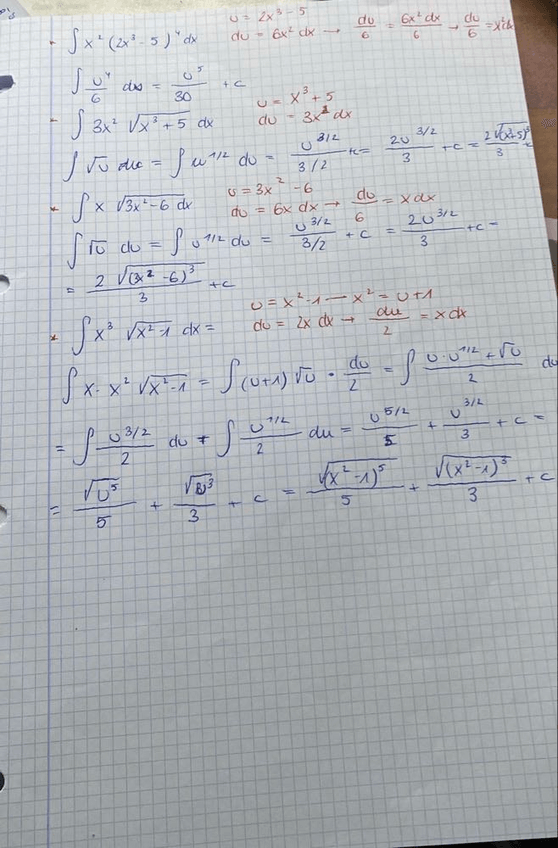 ∫ x² (2x³ - 5)⁴ dx    u = 2x³ - 5
du = 6x² dx → du/6 = 6x² dx/6 → du/6 = x² dx
∫ u⁴/6 du = u⁵/30 + c
∫ 3x² √(x³ + 5) dx    u = x³ + 5
du = 3x² dx
∫ √u du = ∫ u^(1/2) du = u^(3/2)/(3/2) + c = 2u^(3/2)/3 + c = 2√(x³+5)³/3 +
∫ x √(3x² - 6) dx    u = 3x² - 6
du = 6x dx → du/6 = x dx
∫ √u du = ∫ u^(1/2) du = u^(3/2)/(3/2) + c = 2u^(3/2)/3 + c =
= 2 √(3x² - 6)³/3 + c
∫ x³ √(x² - 1) dx =    u = x² - 1 — x² = u + 1
du = 2x dx → du/2 = x dx
∫ x · x² √(x² - 1) = ∫ (u+1) √u · du/2 = ∫ (u · u^(1/2) + √u)/2 du
= ∫ u^(3/2)/2 du + ∫ u^(1/2)/2 du = u^(5/2)/5 + u^(3/2)/3 + c =
= √u⁵/5 + √u³/3 + c = √(x² - 1)⁵/5 + √(x² - 1)³/3 + c